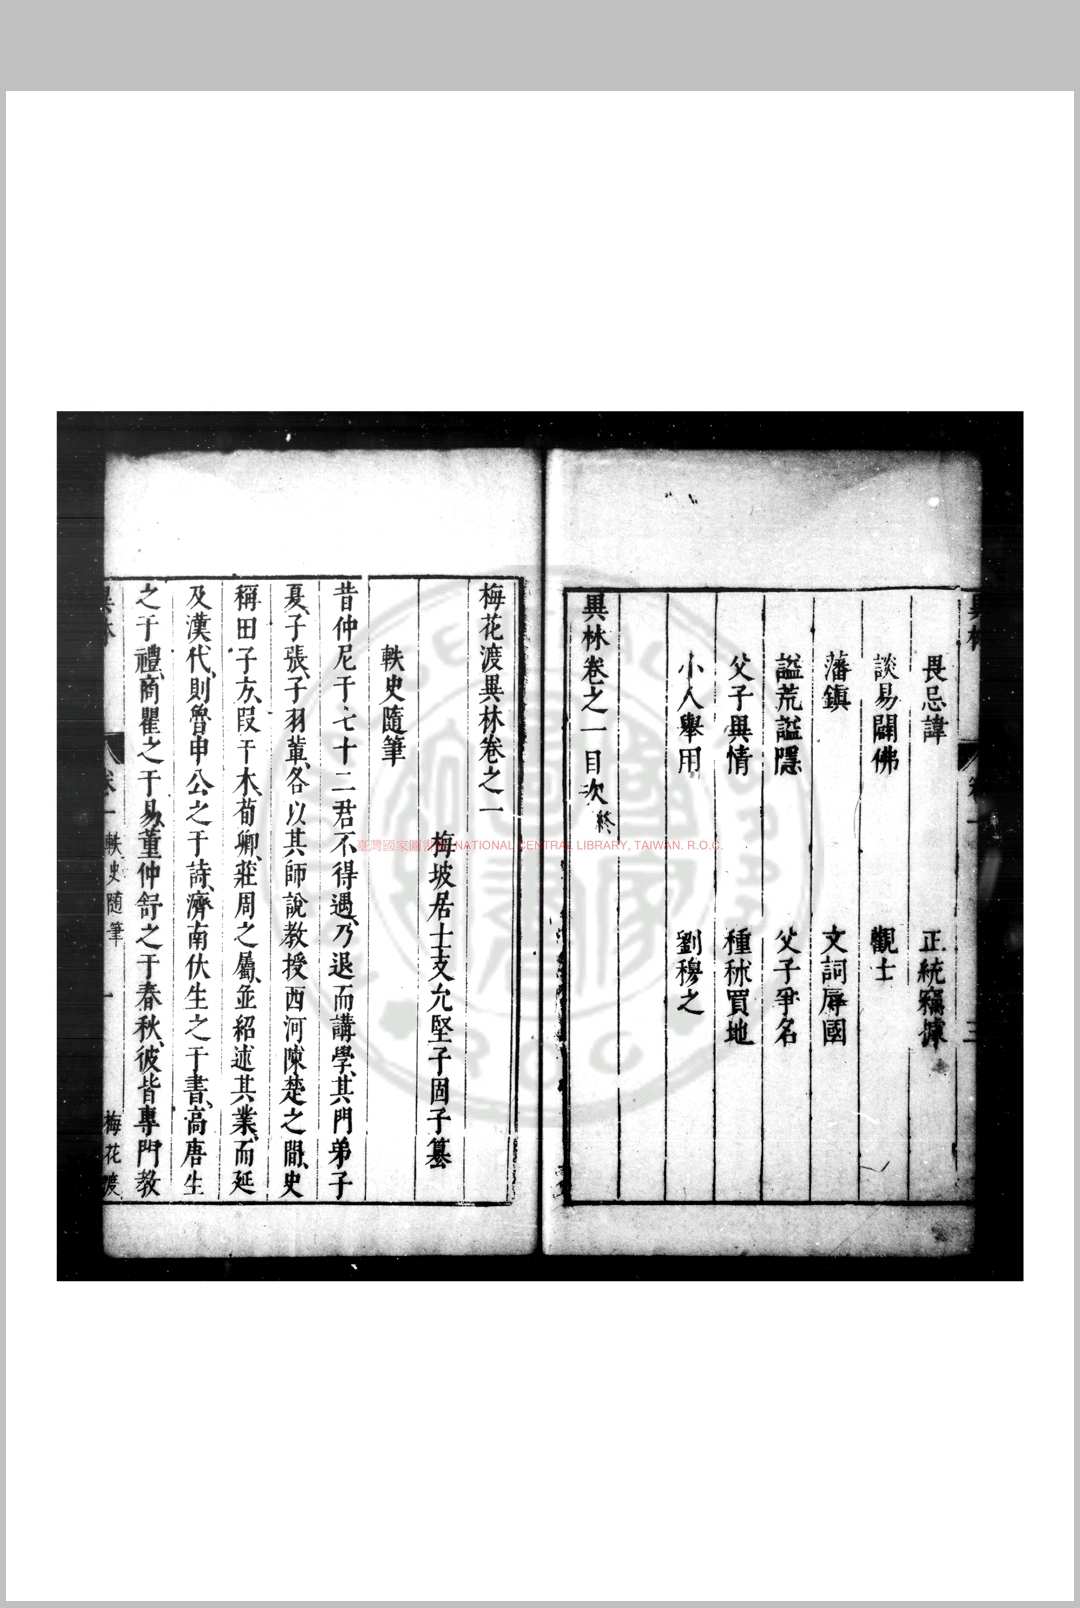 異林
卷一
三
畏忌諱 正統竊據
談易闢佛 觀士
藩鎮 文詞辱國
謚荒謚隱 父子爭名
父子異情 種秫買地
小人舉用 劉穆之
異林卷之一目次 終
梅花渡異林卷之一
梅坡居士支允堅子固子纂
軼史隨筆
昔仲尼于七十二君不得遇乃退而講學其門弟子
夏子張子羽輩各以其師說教授西河陳楚之間史
稱田子方叚干木荀卿莊周之屬並紹述其業而延
及漢代則魯申公之于詩濟南伏生之于書高唐生
之于禮商瞿之于易董仲舒之于春秋彼皆專門教
異林
卷一
軼史隨筆
一
梅花渡
臺灣國家圖書 NATIONAL CENTRAL LIBRARY, TAIWAN. R.O.C.